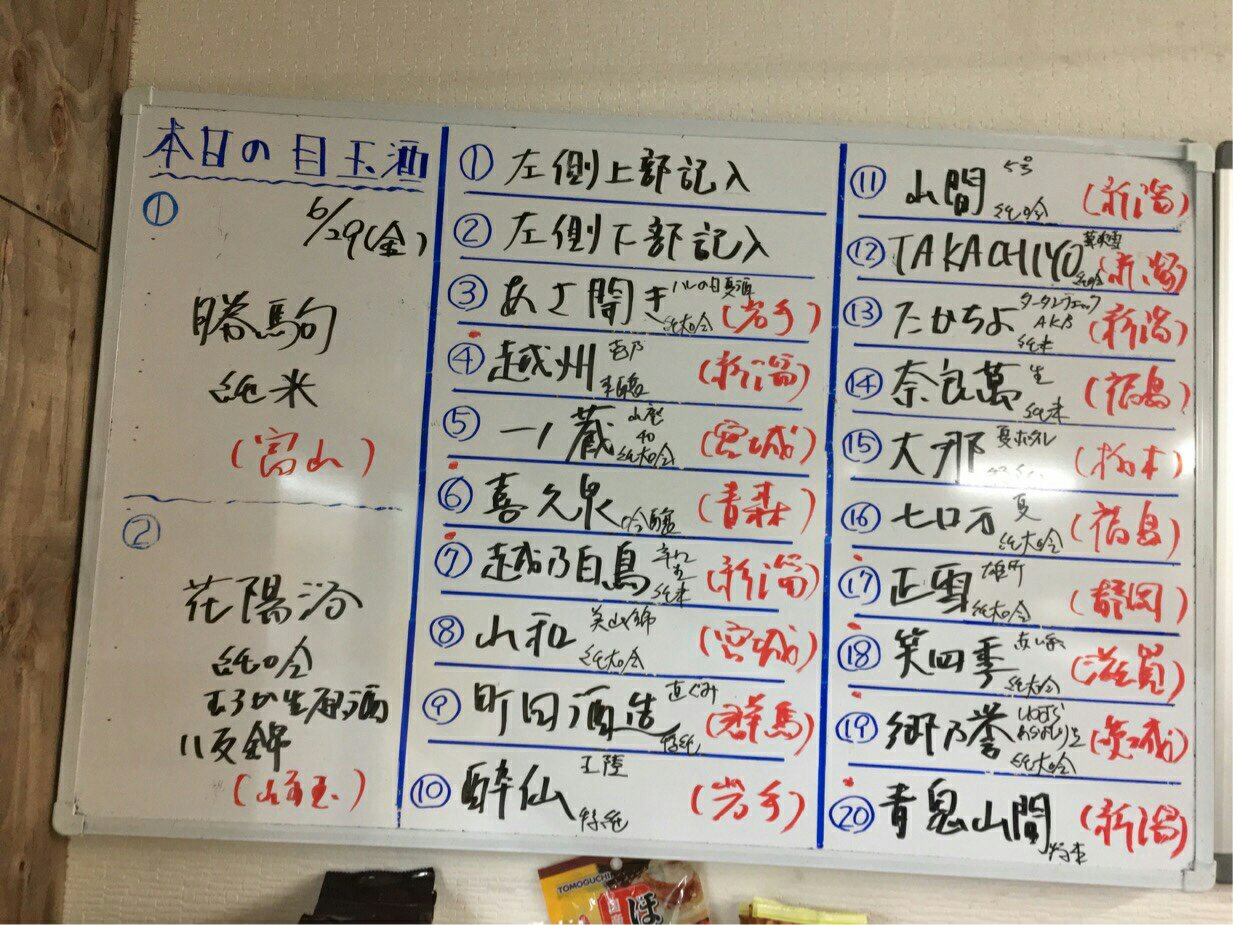 本日の目玉酒
① 6/29(金)
勝駒
純米
(富山)
②
花陽浴
純吟
おりがらみ生原酒
八反錦
(埼玉)
① 左側上部記入
② 左側下部記入
③ あさ開き ハレの日夏酒 純大吟 (岩手)
④ 越州 (新潟)
⑤ 一ノ蔵 純大吟 (宮城)
⑥ 喜久泉 吟醸 (青森)
⑦ 越乃白鳥 純米 (新潟)
⑧ 山和 美山錦 純大吟 (宮城)
⑨ 町田酒造 直ぐみ 特純 (群馬)
⑩ 酔仙 特純 (岩手)
⑪ 山間 純吟 (新潟)
⑫ TAKACHIYO 純吟 (新潟)
⑬ たかちよ タータンチェック AKB 純米 (新潟)
⑭ 奈良萬 生 純米 (福島)
⑮ 大那 夏ホタル (栃木)
⑯ 七ロ万 夏 純大吟 (福島)
⑰ 正雪 雄町 純大吟 (静岡)
⑱ 笑四季 純大吟 (滋賀)
⑲ 郷乃誉 純大吟 (茨城)
⑳ 青鬼山間 (新潟)
TOMOGUCHI
ほ